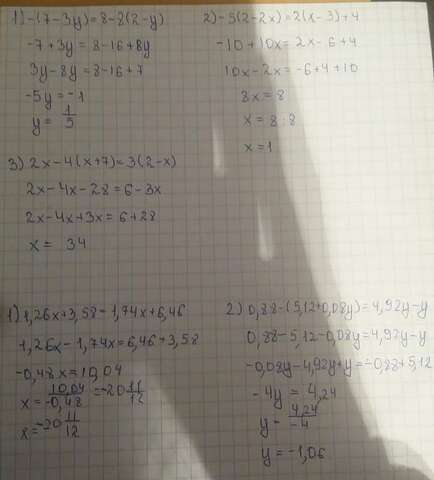 1) -(7-3y)=8-8(2-y)
-7+3y=8-16+8y
3y-8y=8-16+7
-5y=-1
y= 1/5
2) -5(2-2x)=2(x-3)+4
-10+10x=2x-6+4
10x-2x=-6+4+10
8x=8
x=8:8
x=1
3) 2x-4(x+7)=3(2-x)
2x-4x-28=6-3x
2x-4x+3x=6+28
x= 34
1) 1,26x+3,58-1,74x+6,46
1,26x-1,74x=6,46+3,58
-0,48x=10,04
x= 10,04/-0,48 =-20 11/12
x=-20 11/12
2) 0,88-(5,12+0,08y)=4,92y-y
0,88-5,12-0,08y=4,92y-y
-0,08y-4,92y+y=-0,88+5,12
-4y= 4,24
y= 4,24/-4
y=-1,06